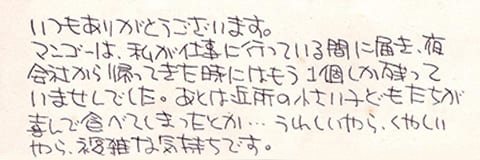 いつもありがとうございます。
マンゴーは、私が仕事に行っている間に届き、夜
会社から帰ってきた時にはもう1個しか残って
いませんでした。あとは近所の小さい子どもたちが
喜んで食べてしまったとか…うれしいやら、くやしい
やら、複雑な気持ちです。